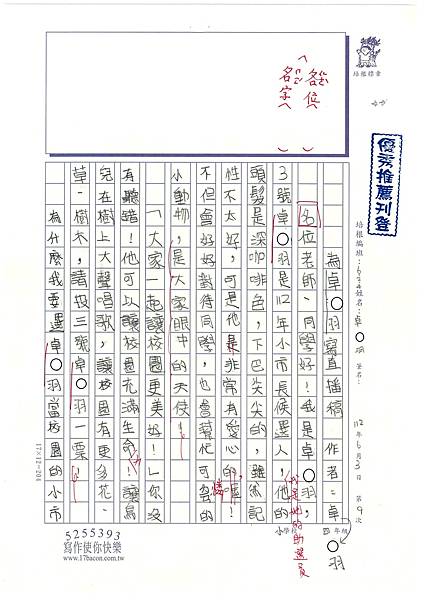 優秀推薦刊登
培根標章
培根編班：634姓名：卓○羽 簽名：
112年6月3日 第9次
小學校 四年級
為卓○羽寫直播稿 作者：卓○羽
名位老師、同學好！我是卓○羽，
我是她的助選員
3號卓○羽是112年小市長候選人，他的
頭髮是深咖啡色，下巴尖尖的，雖然記
性不太好，可是他是非常有愛心的喔！
不但會好好對待同學，也會幫忙可忽的
憐
小動物，是大家眼中的天使！
「大家一起讓校園更美好！」你沒
有聽錯！他可以讓校園充滿生命！讓鳥
兒在樹上大聲唱歌，讓校園有更多花、
草、樹木，請投三號卓○羽一票！
為什麼我要選卓○羽當校園的小市
各位
名字
17×12=204
5255393
寫作使你快樂
www.17bacon.com.tw